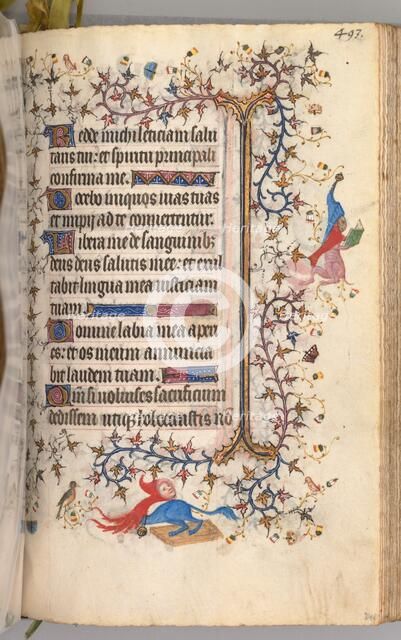 497.
Redde michi leticiam salu
taris tui: et spiritu principali
confirma me.
Docebo iniquos vias tuas
et impii ad te convertentur.
Libera me de sanguinibz
deus deus salutis mee: et exul
tabit lingua mea iusticiam
tuam.
Domine labia mea aperi
es: et os meum annuncia
bit laudem tuam.
Qm si voluisses sacrificium
dedissem utiqz holocaustis no
Heritage
Heritage
Heritage
Heritage